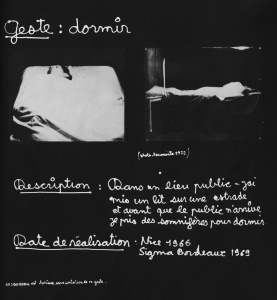 Geste : dormir
(photo document 1972)
Description : Dans un lieu public - j'ai
mis un lit sur une estrade
et avant que le public n'arrive
je pris des somnifères pour dormir
Date de réalisation : Nice 1966
Sigma Bordeaux 1969
ce geste.